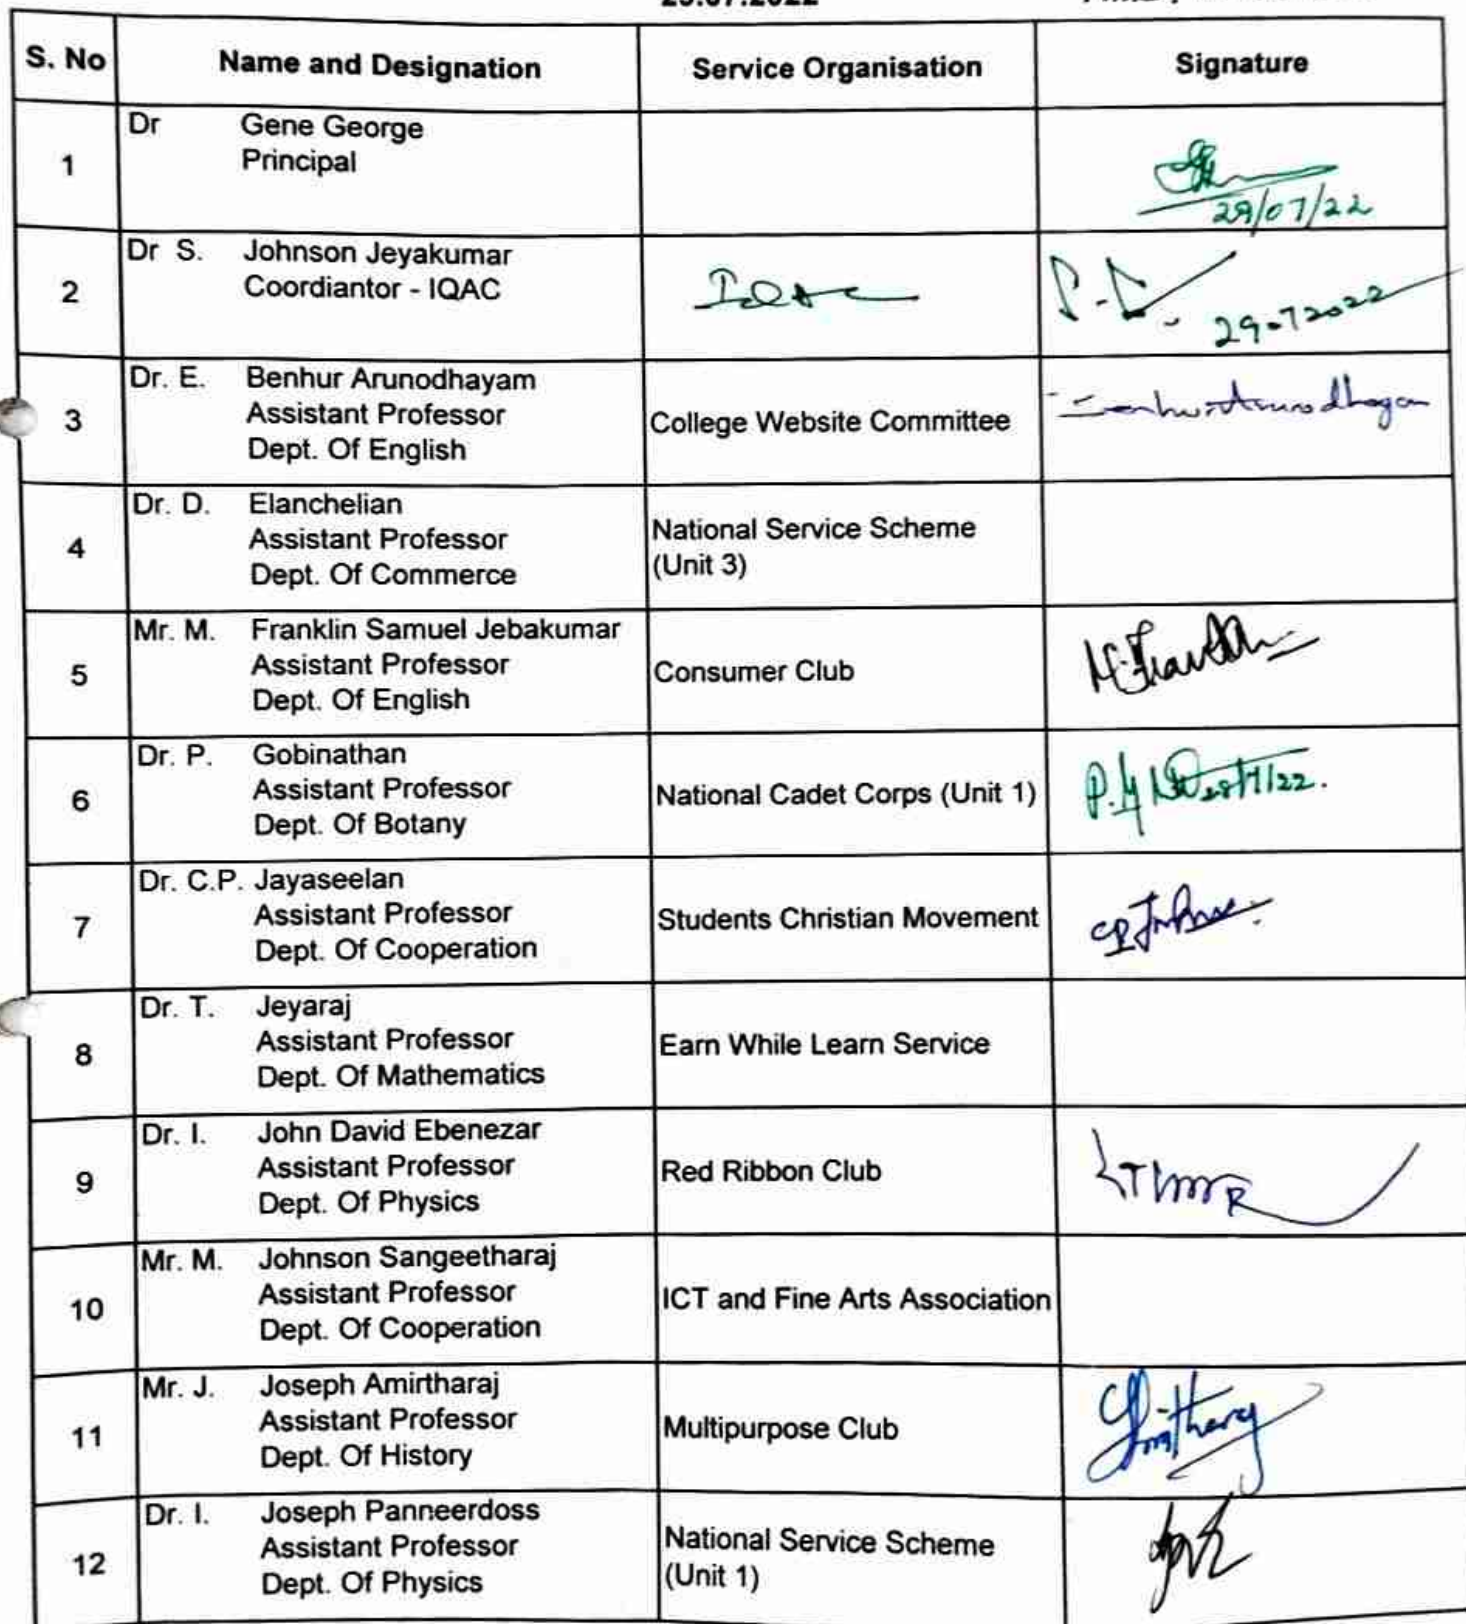 S. No Name and Designation Service Organisation Signature
1 Dr Gene George
Principal
29/07/22
2 Dr S. Johnson Jeyakumar
Coordiantor - IQAC
29.7.2022
3 Dr. E. Benhur Arunodhayam
Assistant Professor
Dept. Of English
College Website Committee
4 Dr. D. Elanchelian
Assistant Professor
Dept. Of Commerce
National Service Scheme
(Unit 3)
5 Mr. M. Franklin Samuel Jebakumar
Assistant Professor
Dept. Of English
Consumer Club
6 Dr. P. Gobinathan
Assistant Professor
Dept. Of Botany
National Cadet Corps (Unit 1)
7 Dr. C.P. Jayaseelan
Assistant Professor
Dept. Of Cooperation
Students Christian Movement
8 Dr. T. Jeyaraj
Assistant Professor
Dept. Of Mathematics
Earn While Learn Service
9 Dr. I. John David Ebenezar
Assistant Professor
Dept. Of Physics
Red Ribbon Club
10 Mr. M. Johnson Sangeetharaj
Assistant Professor
Dept. Of Cooperation
ICT and Fine Arts Association
11 Mr. J. Joseph Amirtharaj
Assistant Professor
Dept. Of History
Multipurpose Club
12 Dr. I. Joseph Panneerdoss
Assistant Professor
Dept. Of Physics
National Service Scheme
(Unit 1)